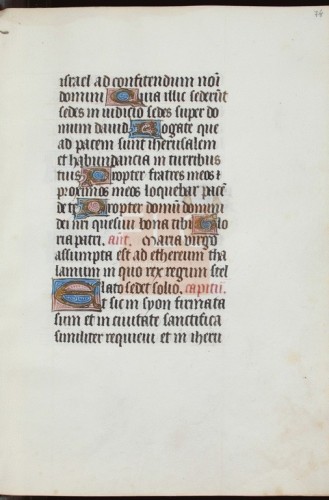 74
israel ad confitendum noĩ
domini Quia illic sederũt
sedes in iudicio sedes super do
mum dauid Rogate que
ad pacem sunt iherusalem
et habundancia in turribus
tuis Propter fratres meos ⁊
proximos meos loquebar pacẽ
de te Propter domũ domini
dei nr̃i quesiui bona tibi Glo
ria patri. añt. Maria virgo
assumpta est ad ethereum tha
lamum in quo rex regum stel
lato sedet solio. capitũ.
Et sic in syon firmata
sum et in ciuitate sanctifica
similiter requieui et in iheru